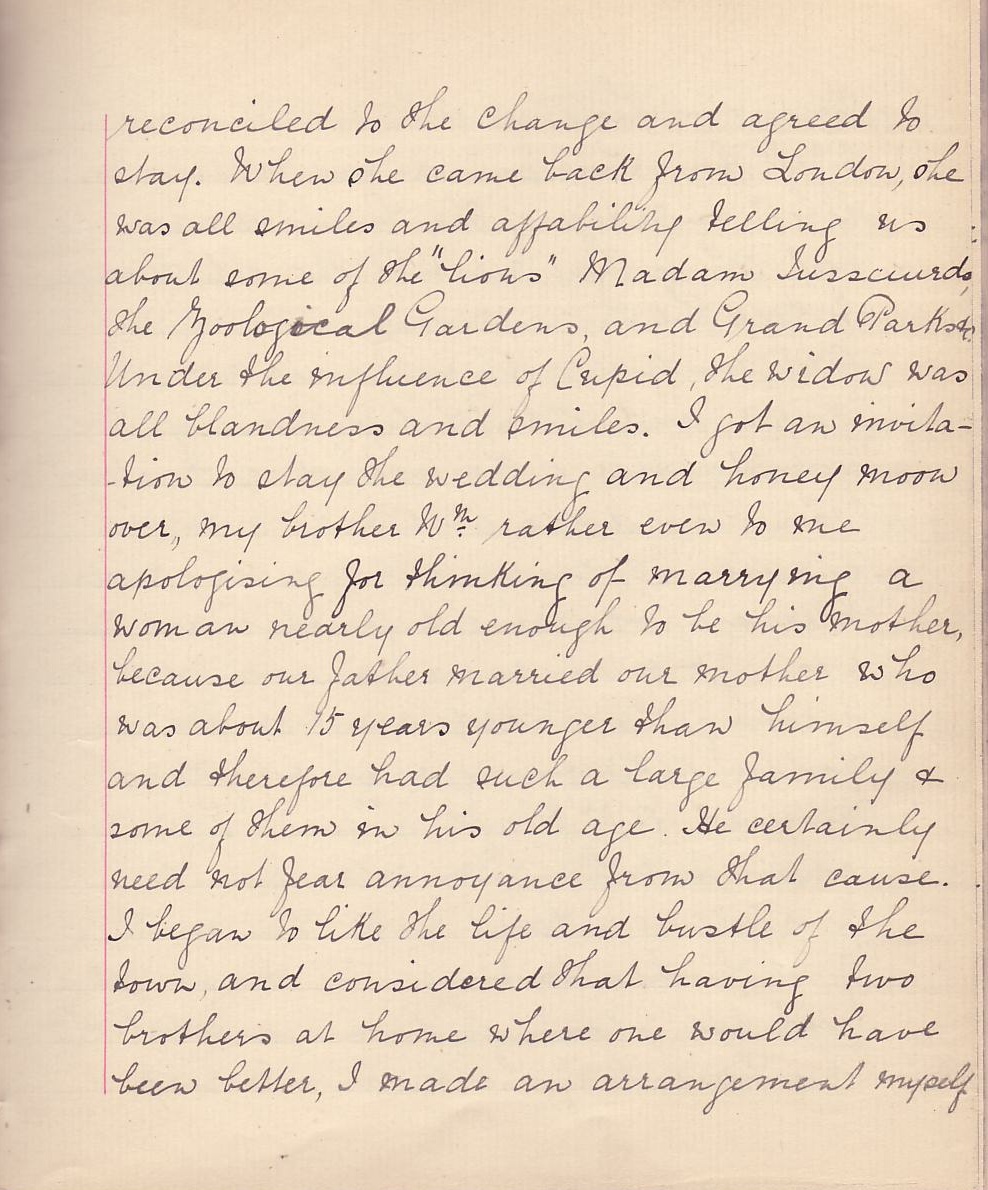 reconciled to the change and agreed to
stay. When she came back from London, she
was all smiles and affability telling us
about some of the "lions" Madam Tussaurds,
the Zoological Gardens, and Grand Parks &c.
Under the influence of Cupid, the widow was
all blandness and smiles. I got an invita-
-tion to stay the wedding and honey moon
over, my brother Wm. rather even to me
apologising for thinking of marrying a
woman nearly old enough to be his mother,
because our father married our mother who
was about 15 years younger than himself
and therefore had such a large family &
some of them in his old age. He certainly
need not fear annoyance from that cause.
I began to like the life and bustle of the
town, and considered that having two
brothers at home where one would have
been better, I made an arrangement myself